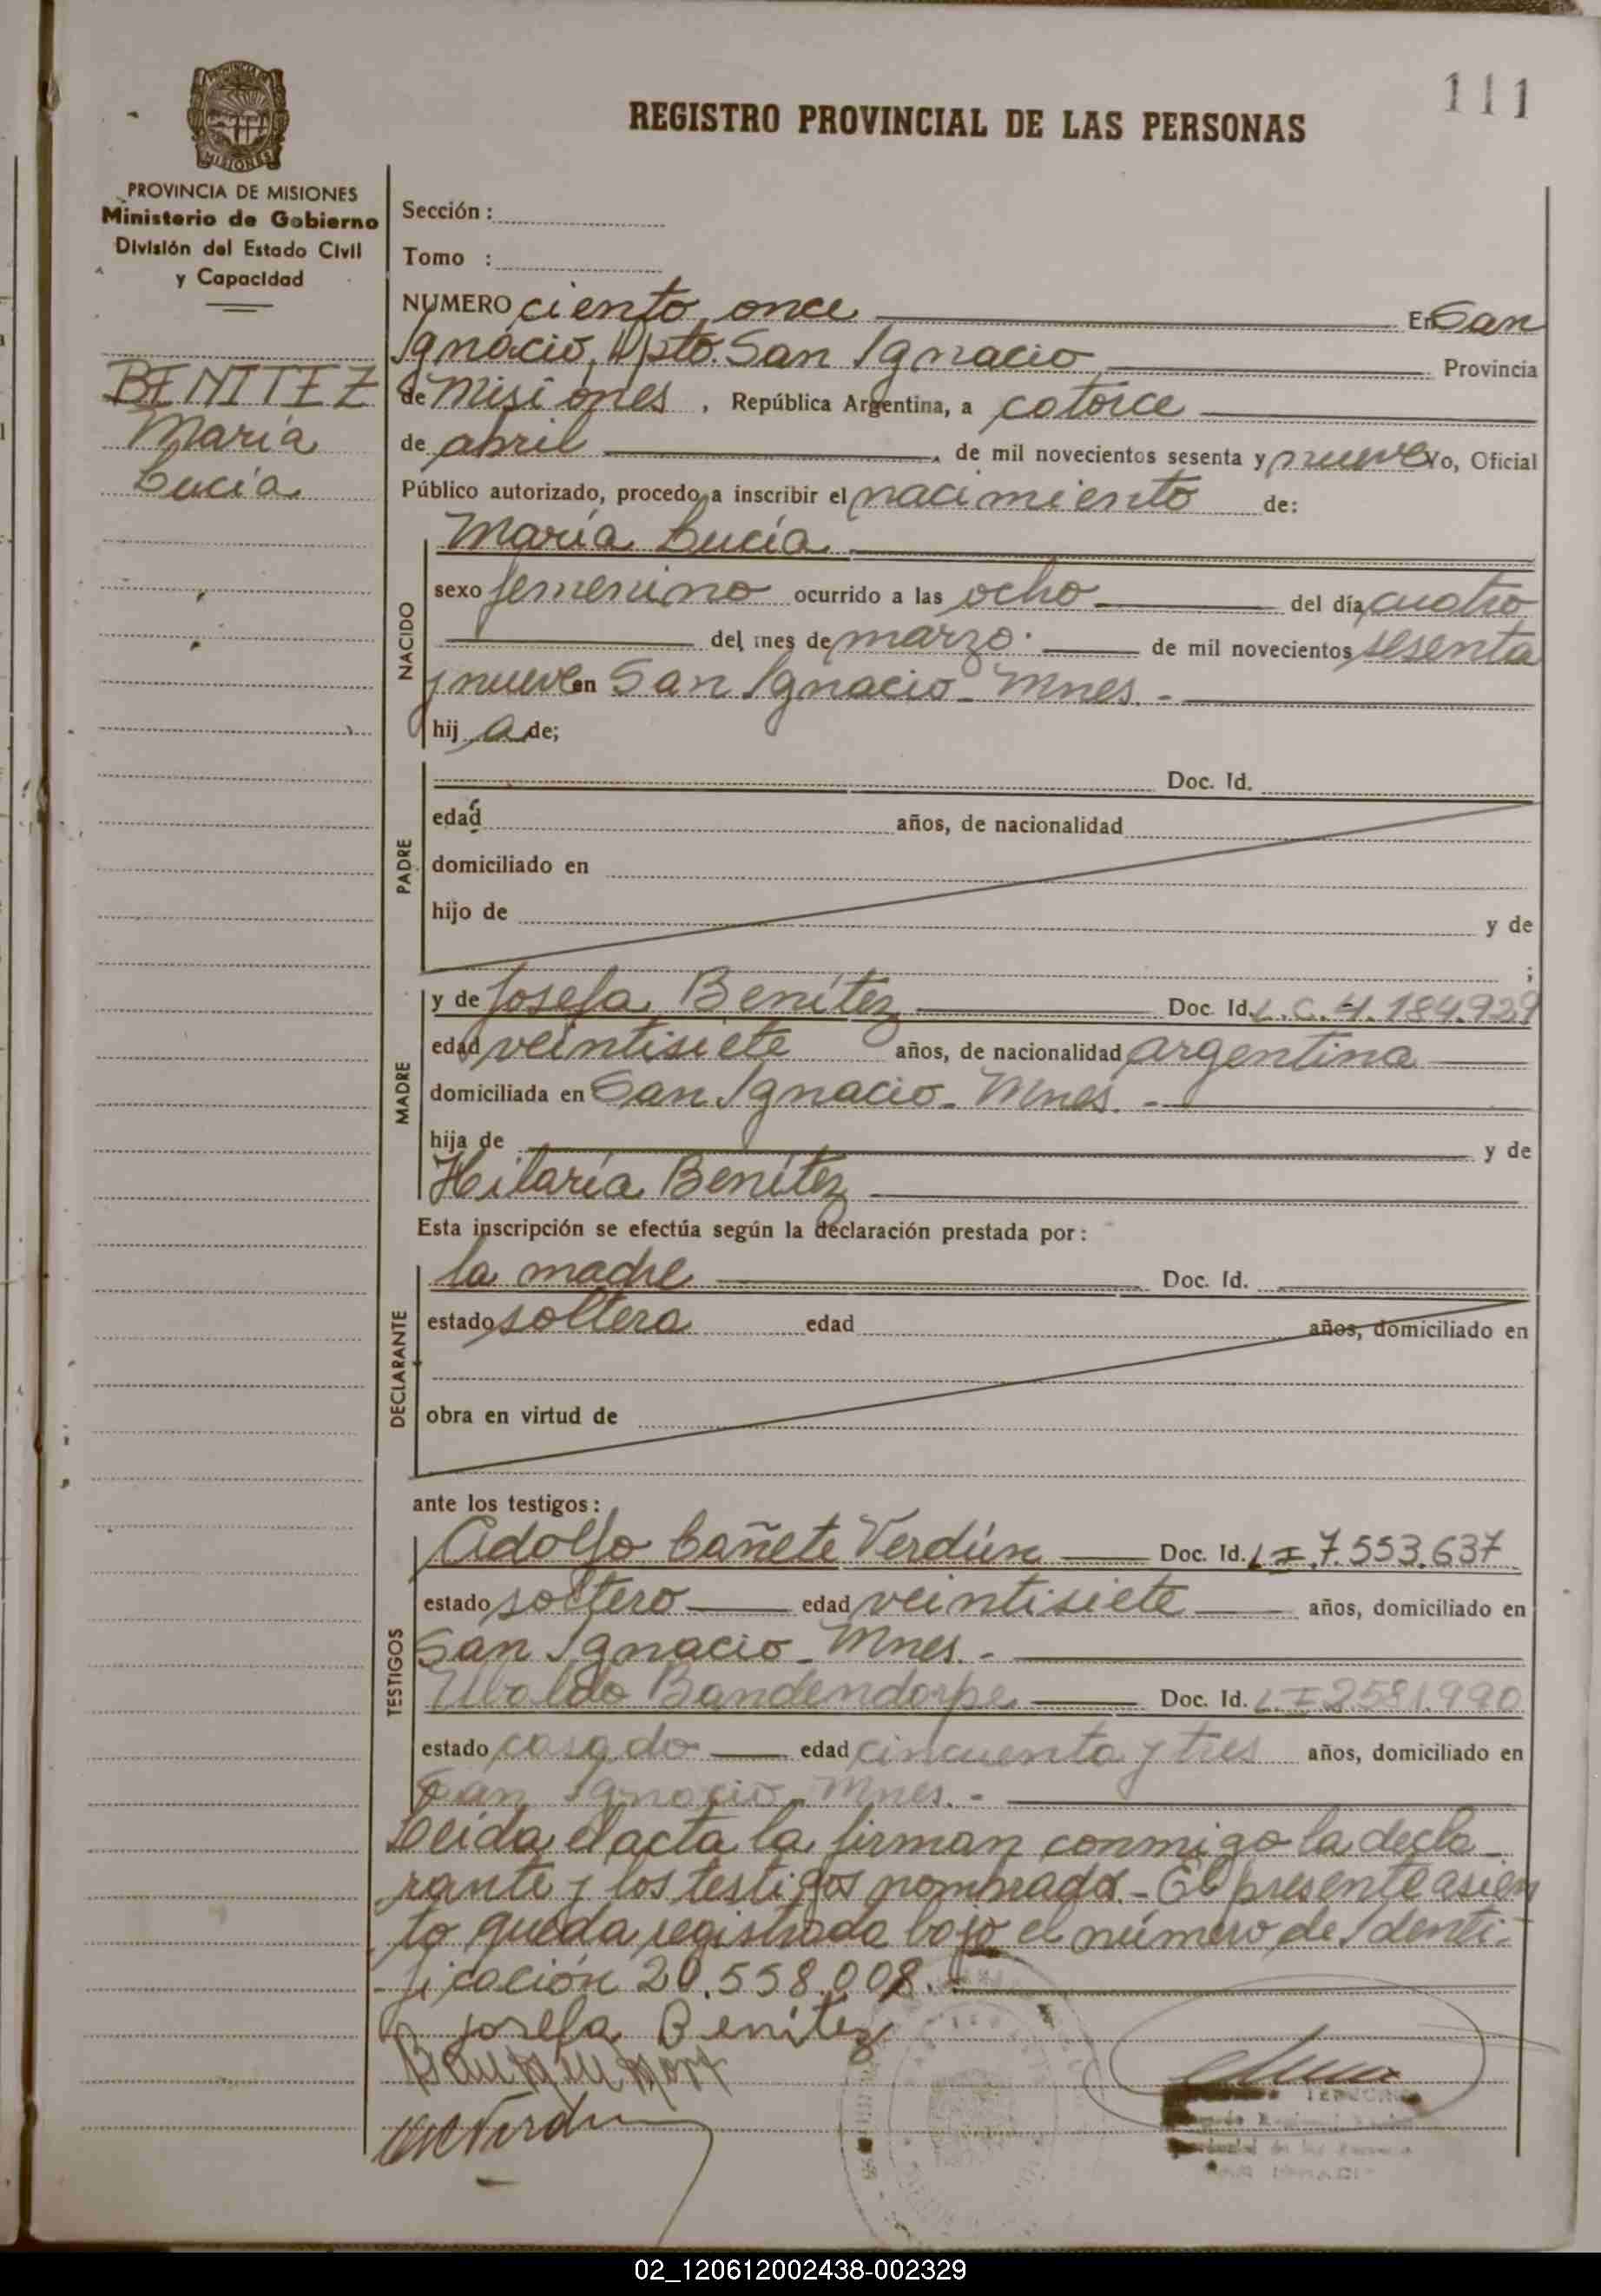 111
REGISTRO PROVINCIAL DE LAS PERSONAS
PROVINCIA DE MISIONES
Ministerio de Gobierno
División del Estado Civil
y Capacidad
BENITEZ
María
Lucía
Sección :
Tomo :
NUMERO ciento once En San
Ignacio, Dpto. San Ignacio Provincia
de Misiones , República Argentina, a catorce
de abril , de mil novecientos sesenta y nueve Yo, Oficial
Público autorizado, procedo a inscribir el nacimiento de:
NACIDO
María Lucía
sexo femenino ocurrido a las ocho del día cuatro
del mes de marzo de mil novecientos sesenta
y nueve en San Ignacio - Mnes. -
hij a de;
PADRE
Doc. Id.
edad años, de nacionalidad
domiciliado en
hijo de y de
;
MADRE
y de Josefa Benítez Doc. Id. L.C. 4.184.929
edad veintisiete años, de nacionalidad argentina
domiciliada en San Ignacio - Mnes. -
hija de y de
Hilaria Benítez
Esta inscripción se efectúa según la declaración prestada por :
DECLARANTE
la madre Doc. Id.
estado soltera edad años, domiciliado en
obra en virtud de
ante los testigos :
TESTIGOS
Adolfo Cañete Verdún Doc. Id. L E 7.553.637
estado soltero edad veintisiete años, domiciliado en
San Ignacio - Mnes. -
Ubaldo Bandendorpe Doc. Id. L E 2581.990
estado casado edad cincuenta y tres años, domiciliado en
San Ignacio - Mnes. -
Leída el acta la firman conmigo la decla-
rante y los testigos nombrados.- El presente asien
to queda registrada bajo el número de Identi-
ficación 20.558.008.-
Josefa Benítez
02_120612002438-002329